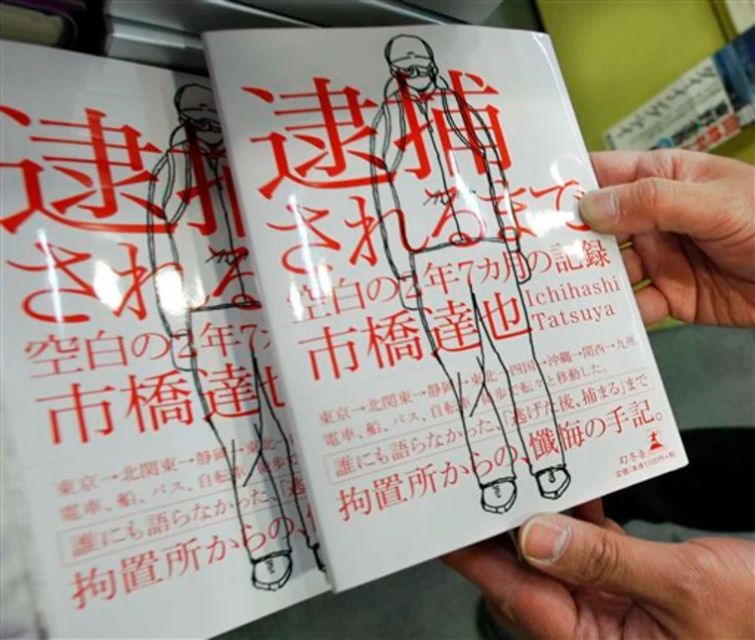 逮捕
されるまで
空白の2年7カ月の記録
市橋達也
Ichihashi
Tatsuya
東京→北関東→静岡→東北→四国→沖縄→関西→九州。
電車、船、バス、自転車、徒歩で転々と移動した。
誰にも語らなかった、「逃げた後、捕まる」まで
拘置所からの、懺悔の手記。
幻冬舎
逮捕
される
空白の2年7
市橋達也
東京→北関東→静岡→東北
電車、船、バス、自転車、徒歩で
誰にも語らなかった、「逃
拘置所からの、